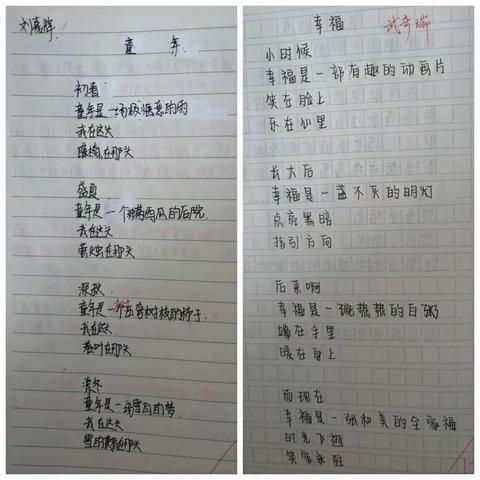 童年
初春
童年是一场极惬意的雨
我在这头
在那头
盛夏
童年是一个满西瓜的后院
我在这头
萤火虫在那头
深秋
童年是一树在弯树枝的柿子
我在这头
落叶在那头
凛冬
童年是一场雪白的梦
我在这头
雪的在那头
幸福
武奇瑞
小时候
幸福是一部有趣的动画片
笑在脸上
乐在心里
长大后
幸福是一盏不灭的明灯
点亮黑暗
指引方向
后来啊
幸福是一碗热热的白粥
端在手里
暖在身上
而现在
幸福是一张和美的全家福
时光飞逝
笑容永驻